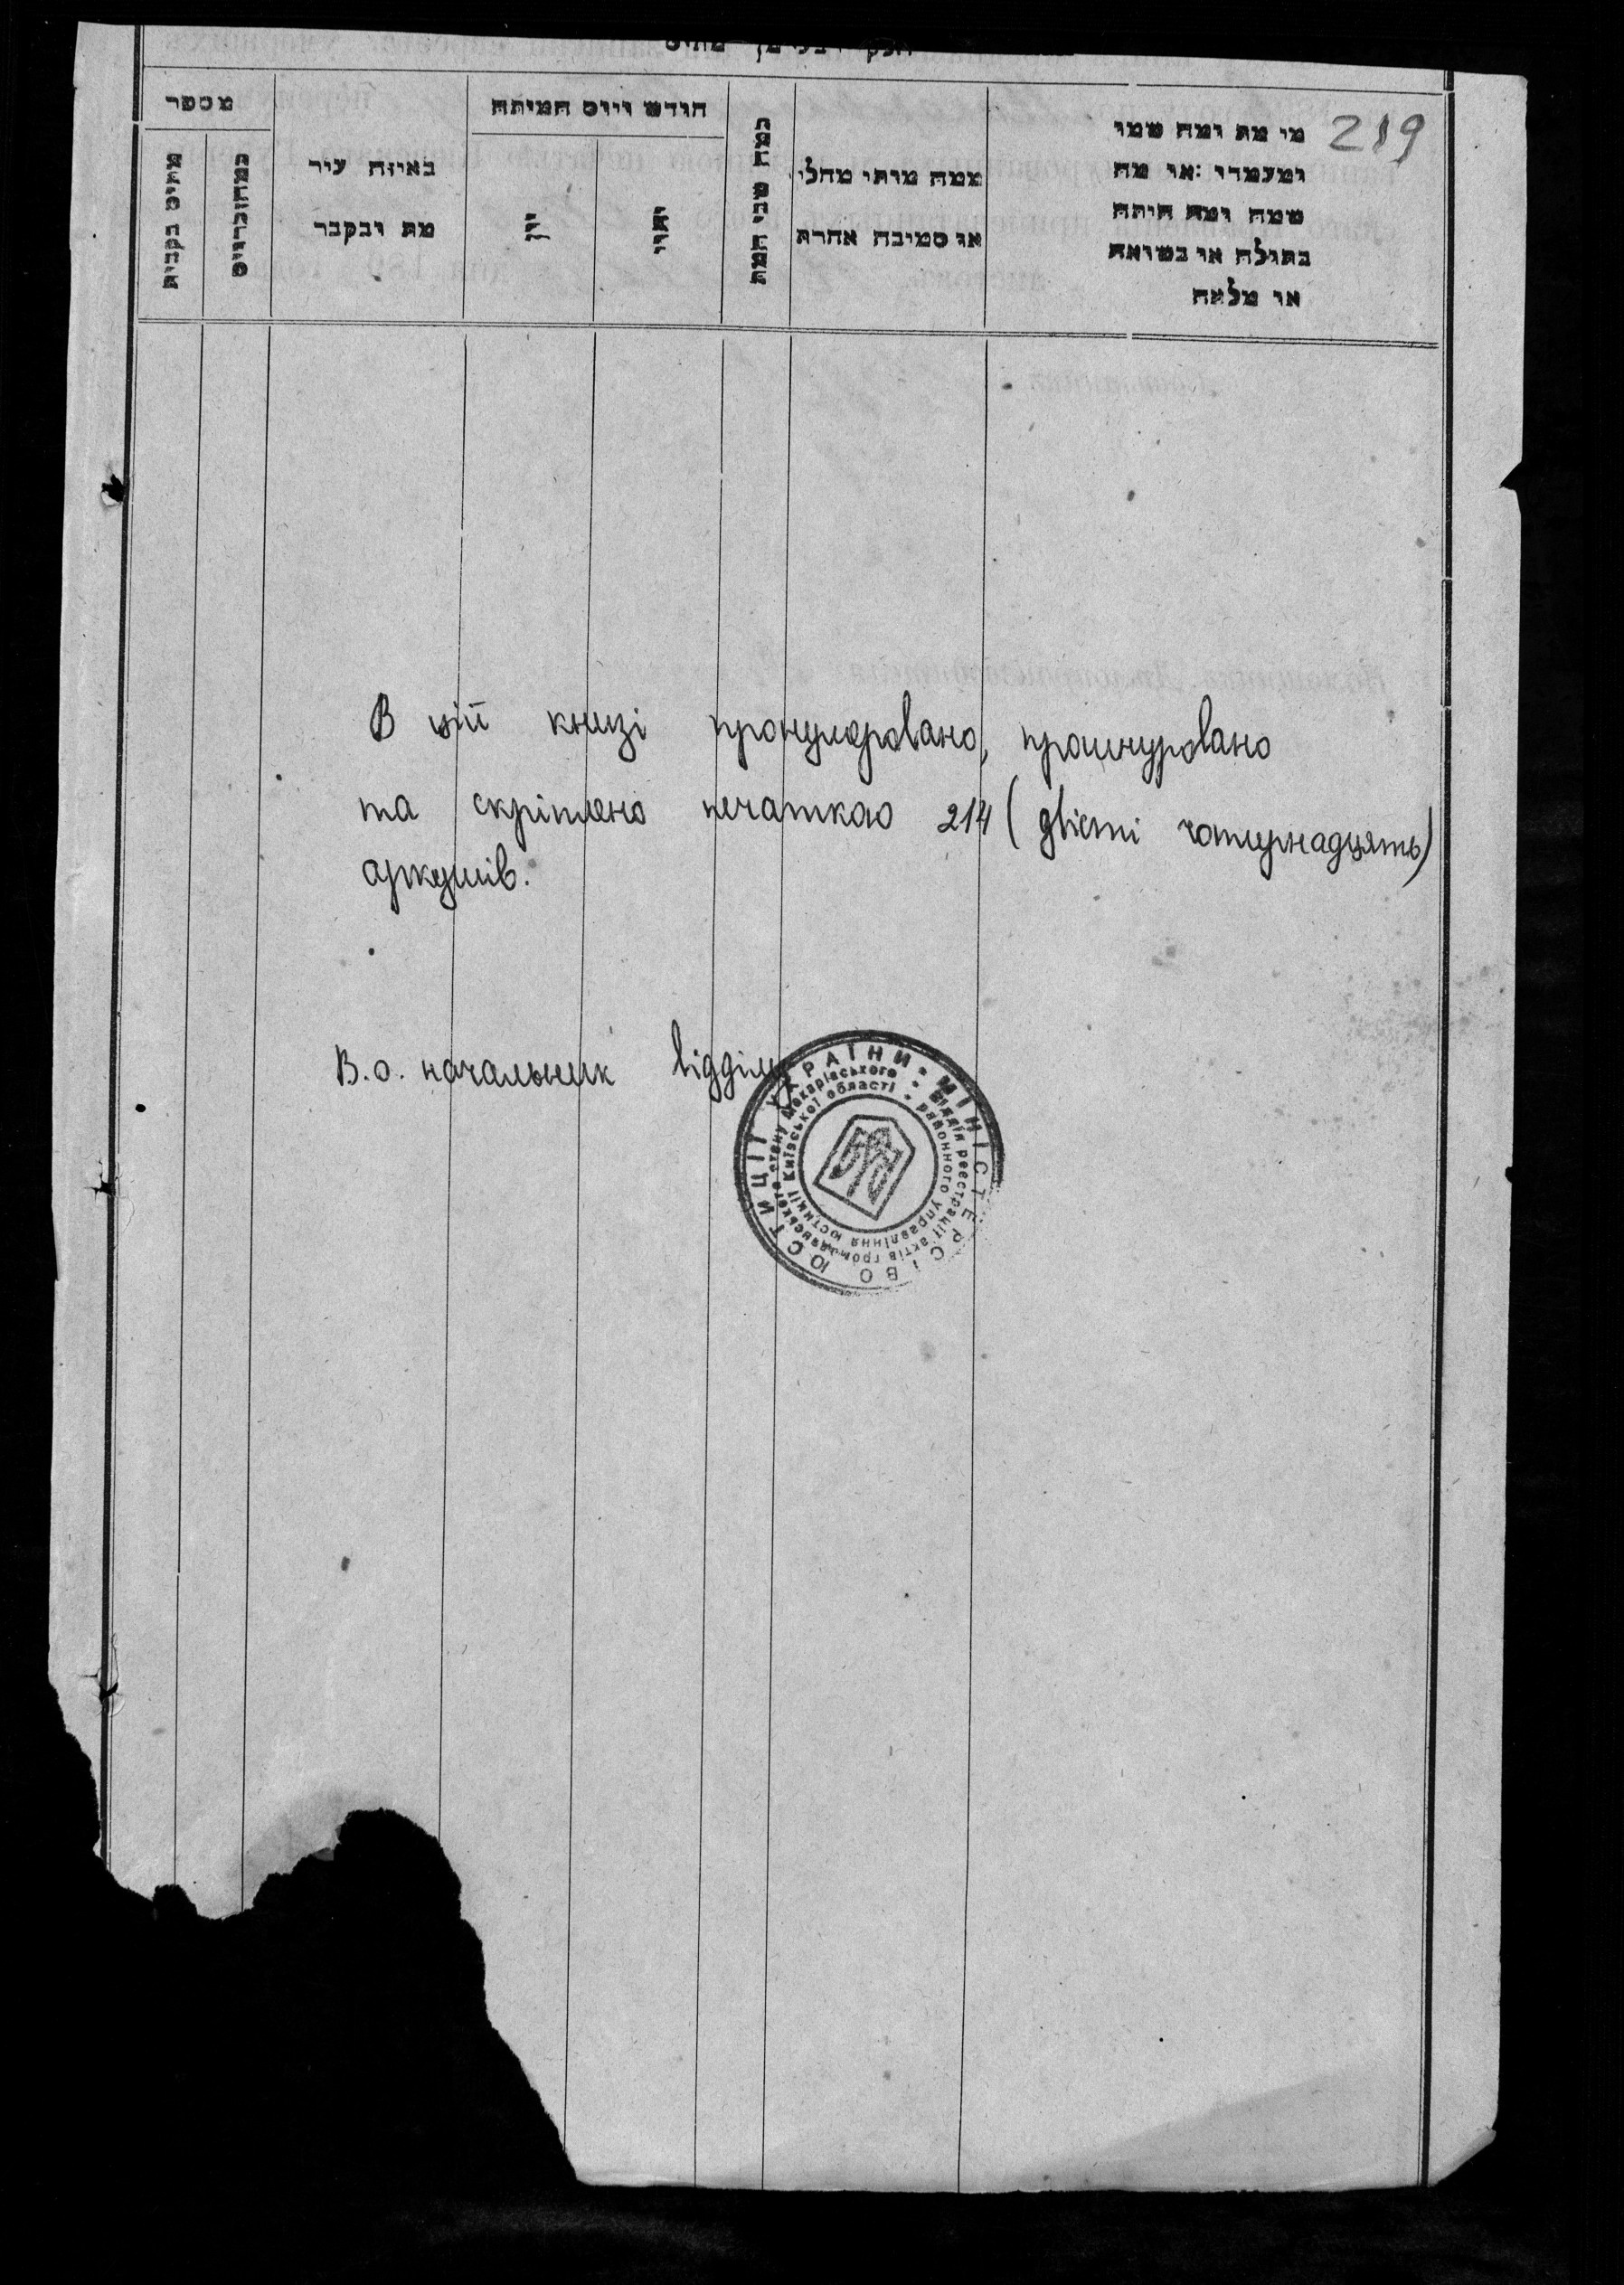 219
מספר
מתים בקבית
במהוברויים
באיזה עיר
מת ויבקבר
חודש ויום המיתה
כמה שני המת
ממה מותי מחלי
או סמיבה אחרת
מי מת ומה שמו
ומעמדו: או מה
שמה ומה חיתה
בתולה או בשואה
או
В цій книзі пронумеровано, прошнуровано
та скріплено печаткою 214 (двісті чотирнадцять)
аркушів.
В.о. начальник відділу
МІНІСТЕРСТВО ЮСТИЦІЇ УКРАЇНИ
Відділ реєстрації актів громадянського стану Макарівського
районного управління юстиції Київської області